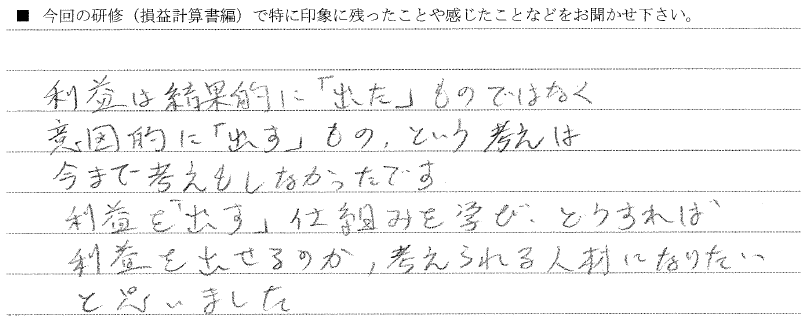 ■ 今回の研修（損益計算書編）で特に印象に残ったことや感じたことなどをお聞かせ下さい。
利益は結果的に「出た」ものではなく
意図的に「出す」もの、という考えは
今まで考えもしなかったです
利益を「出す」仕組みを学び、どうすれば
利益を出せるのか，考えられる人材になりたい
と思いました